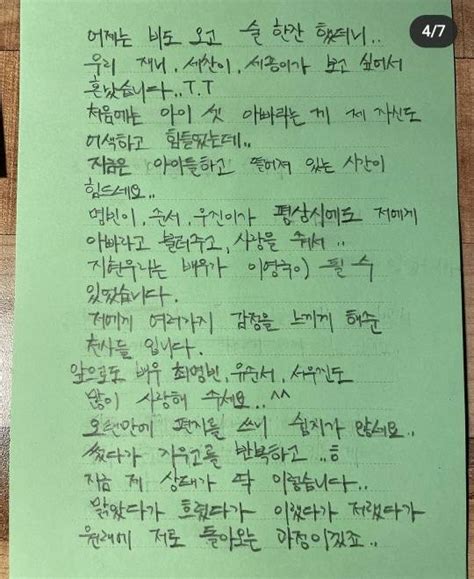 4/7
어제는 비도 오고 술 한잔 했더니..
우리 재니, 세찬이, 세종이가 보고 싶어서
혼났습니다..T.T
처음에는 아이 셋 아빠라는 게 제 자신도
어색하고 힘들었는데..
지금은 아이들하고 떨어져 있는 시간이
힘드네요..
명빈이, 준서, 우진이가 평상시에도 저에게
아빠라고 불러주고, 사랑을 줘서..
지현우라는 배우가 이영국이 될 수
있었습니다.
저에게 여러가지 감정을 느끼게 해준
천사들 입니다.
앞으로도 배우 최명빈, 유준서, 서우진도
많이 사랑해 주세요..^^
오랜만에 편지를 쓰니 쉽지가 않네요..
썼다가 지우고를 반복하고..ㅎ
지금 제 상태가 딱 이렇습니다..
맑았다가 흐렸다가 이랬다가 저랬다가
원래에 저로 돌아오는 과정이겠죠..